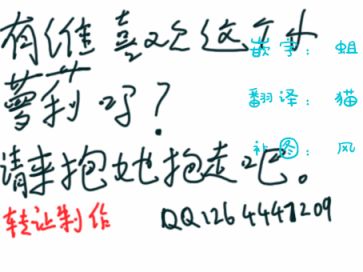 有谁喜欢这个小
萝莉吗？
请来抱她抱走吧。
嵌字：蛆
翻译：猫
补图：风
转让制作
QQ1264441209